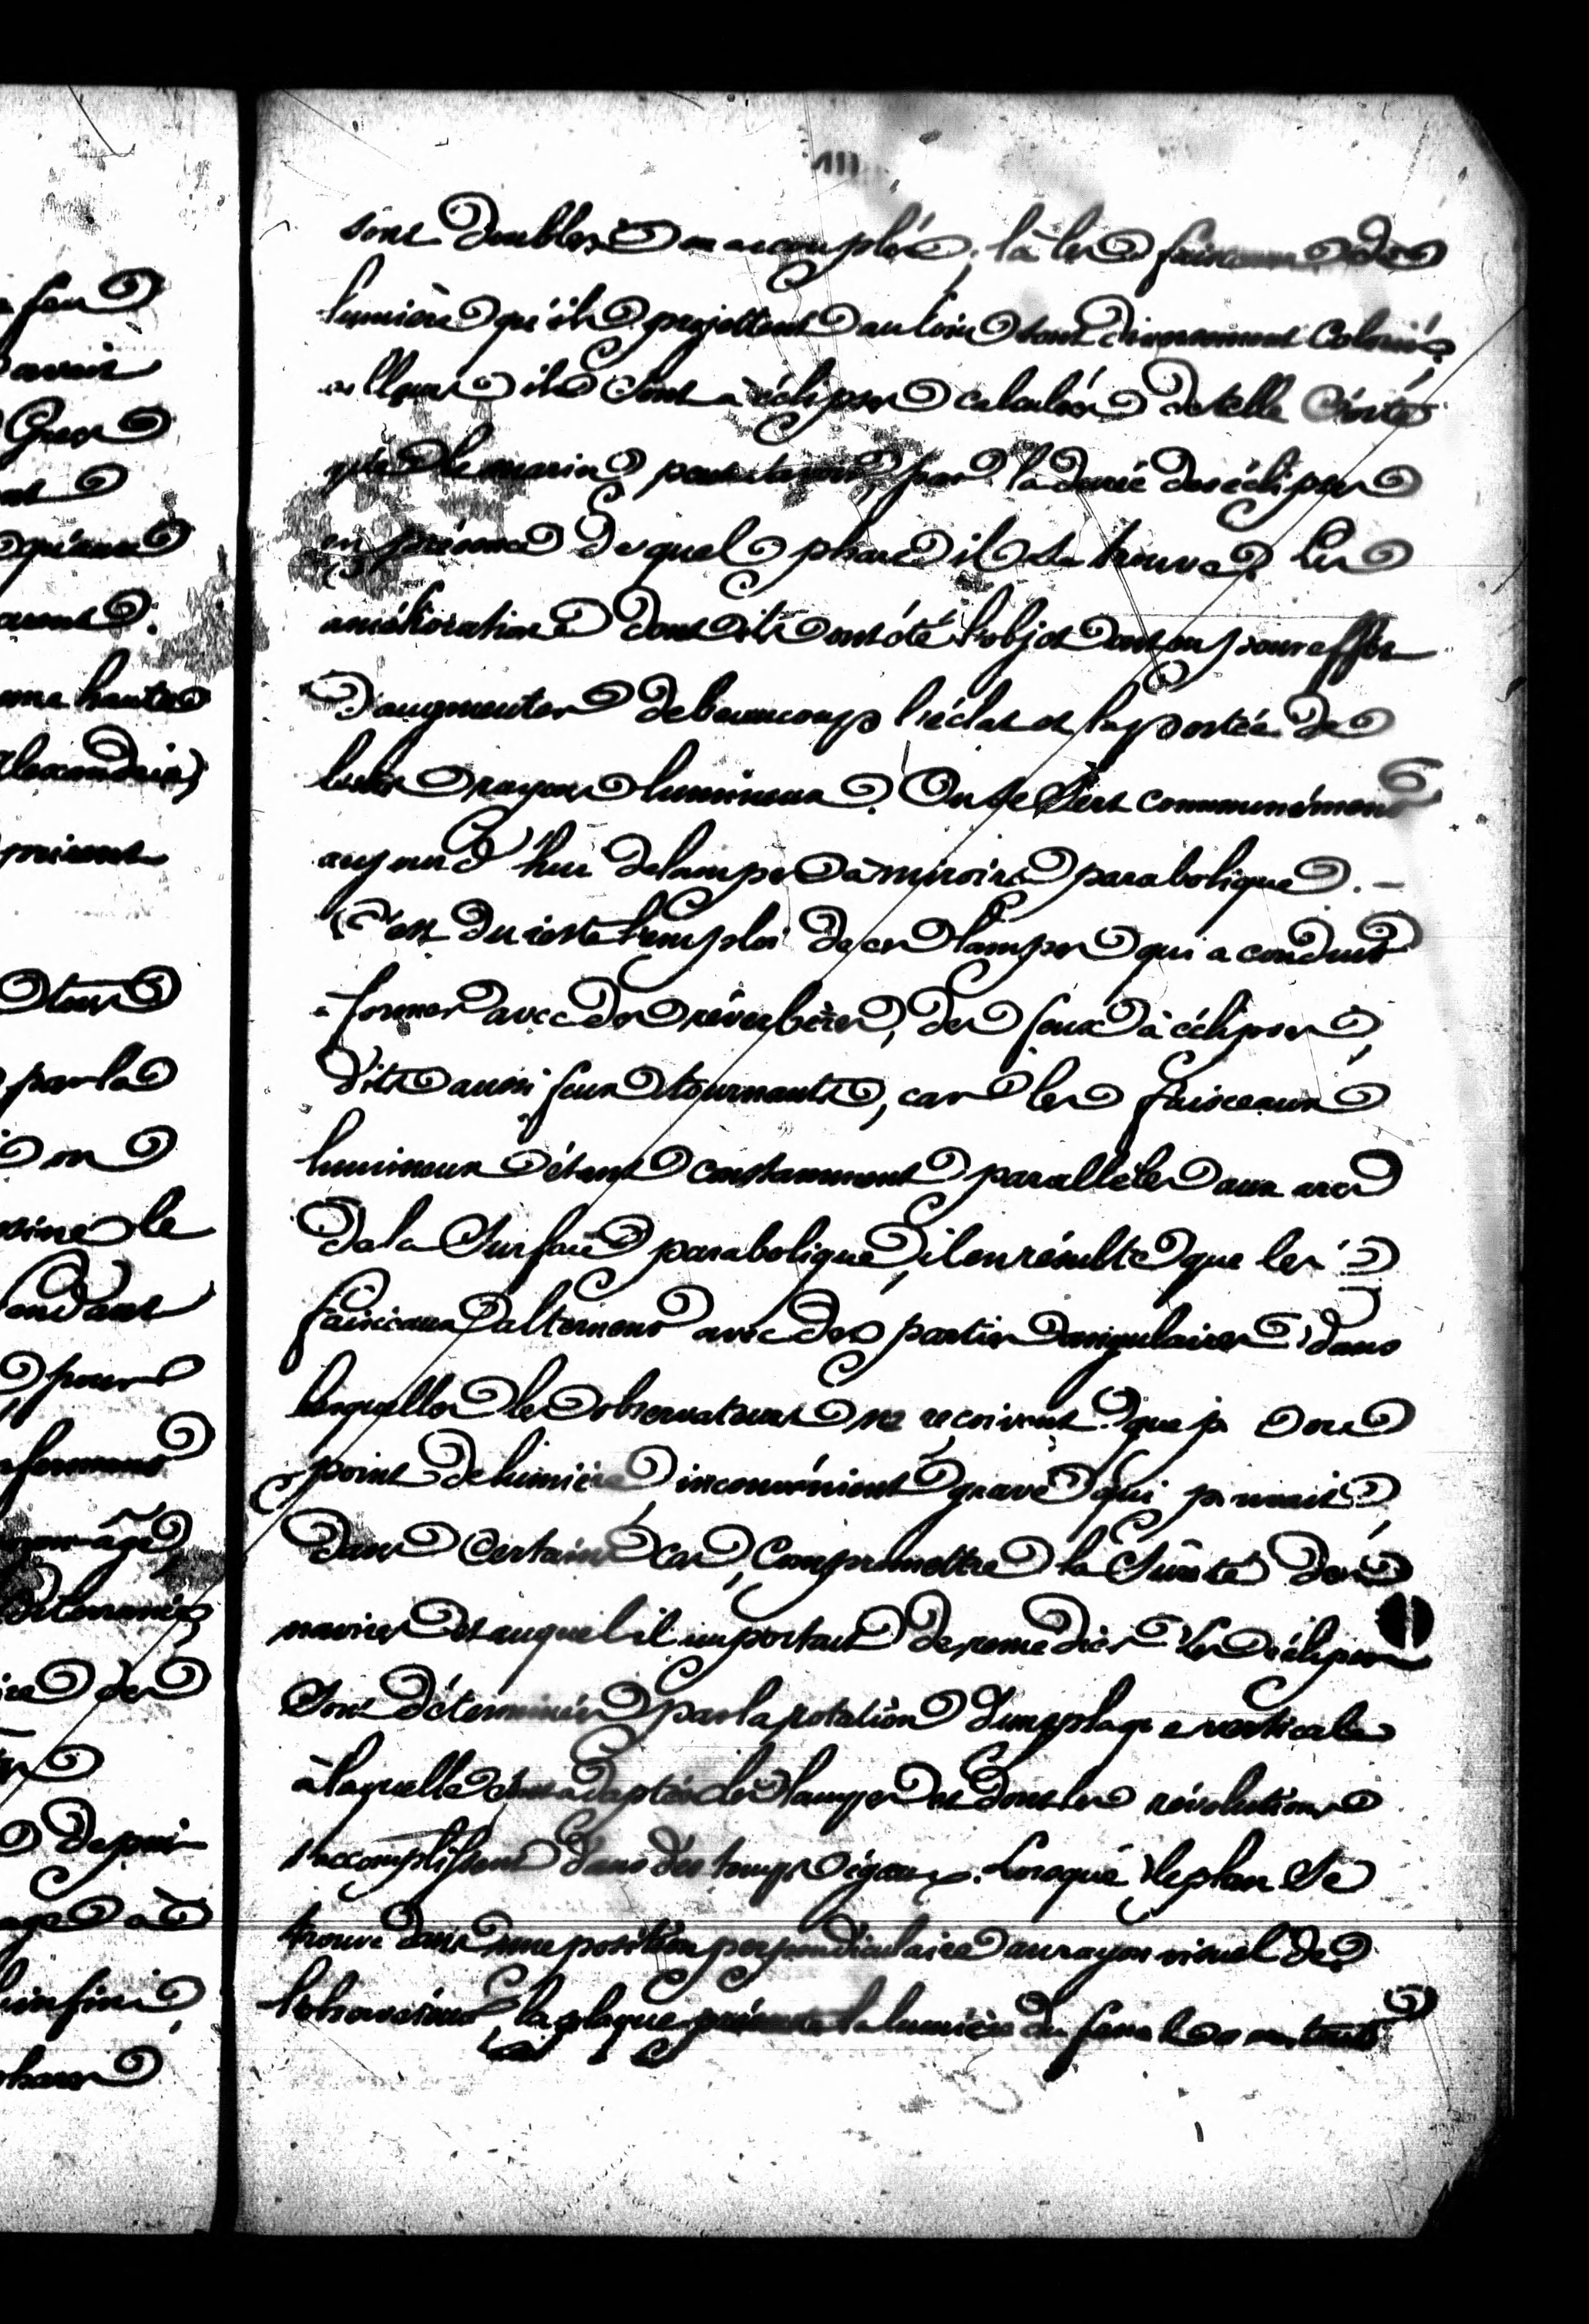 feu
avoir
une haute
Alexandrie)
tour
par la
on
le
pour
depui
infini,
phares
sont doubles ou accouplés ; là les faisceaux de
lumière qu'ils projettent au loin sont diversement colorés,
ailleurs ils sont à éclipses calculées de telle sorte
que le marin peut savoir, par la durée des éclipses
en présence de quel phare il se trouve. Les
améliorations dont ils ont été l'objet ont eu pour effet
d'augmenter de beaucoup l'éclat et la portée de
leurs rayons lumineux. On se sert communément
aujourd'hui de lampes à miroirs paraboliques. –
C'est du reste l'emploi de ces lampes qui a conduit
à former avec des réverbères, des feux à éclipses,
dits aussi feux tournants, car les faisceaux
lumineux étant constamment parallèles aux axes
de la surface parabolique, il en résulte que les
faisceaux alternent avec des parties angulaires dans
lesquelles les observateurs ne reçoivent que peu ou
point de lumière, inconvénient grave qui pouvait,
dans certains cas, compromettre la sûreté des
navires et auquel il importait de remedier. Les éclipses
sont déterminées par la rotation d'une plaque verticale
à laquelle sont adaptées les lampes et dont les révolutions
s'accomplissent dans des temps égaux. Lorsque le plan se
trouve dans une position perpendiculaire au rayon visuel de
l'observateur, la plaque présente la lumière du feu